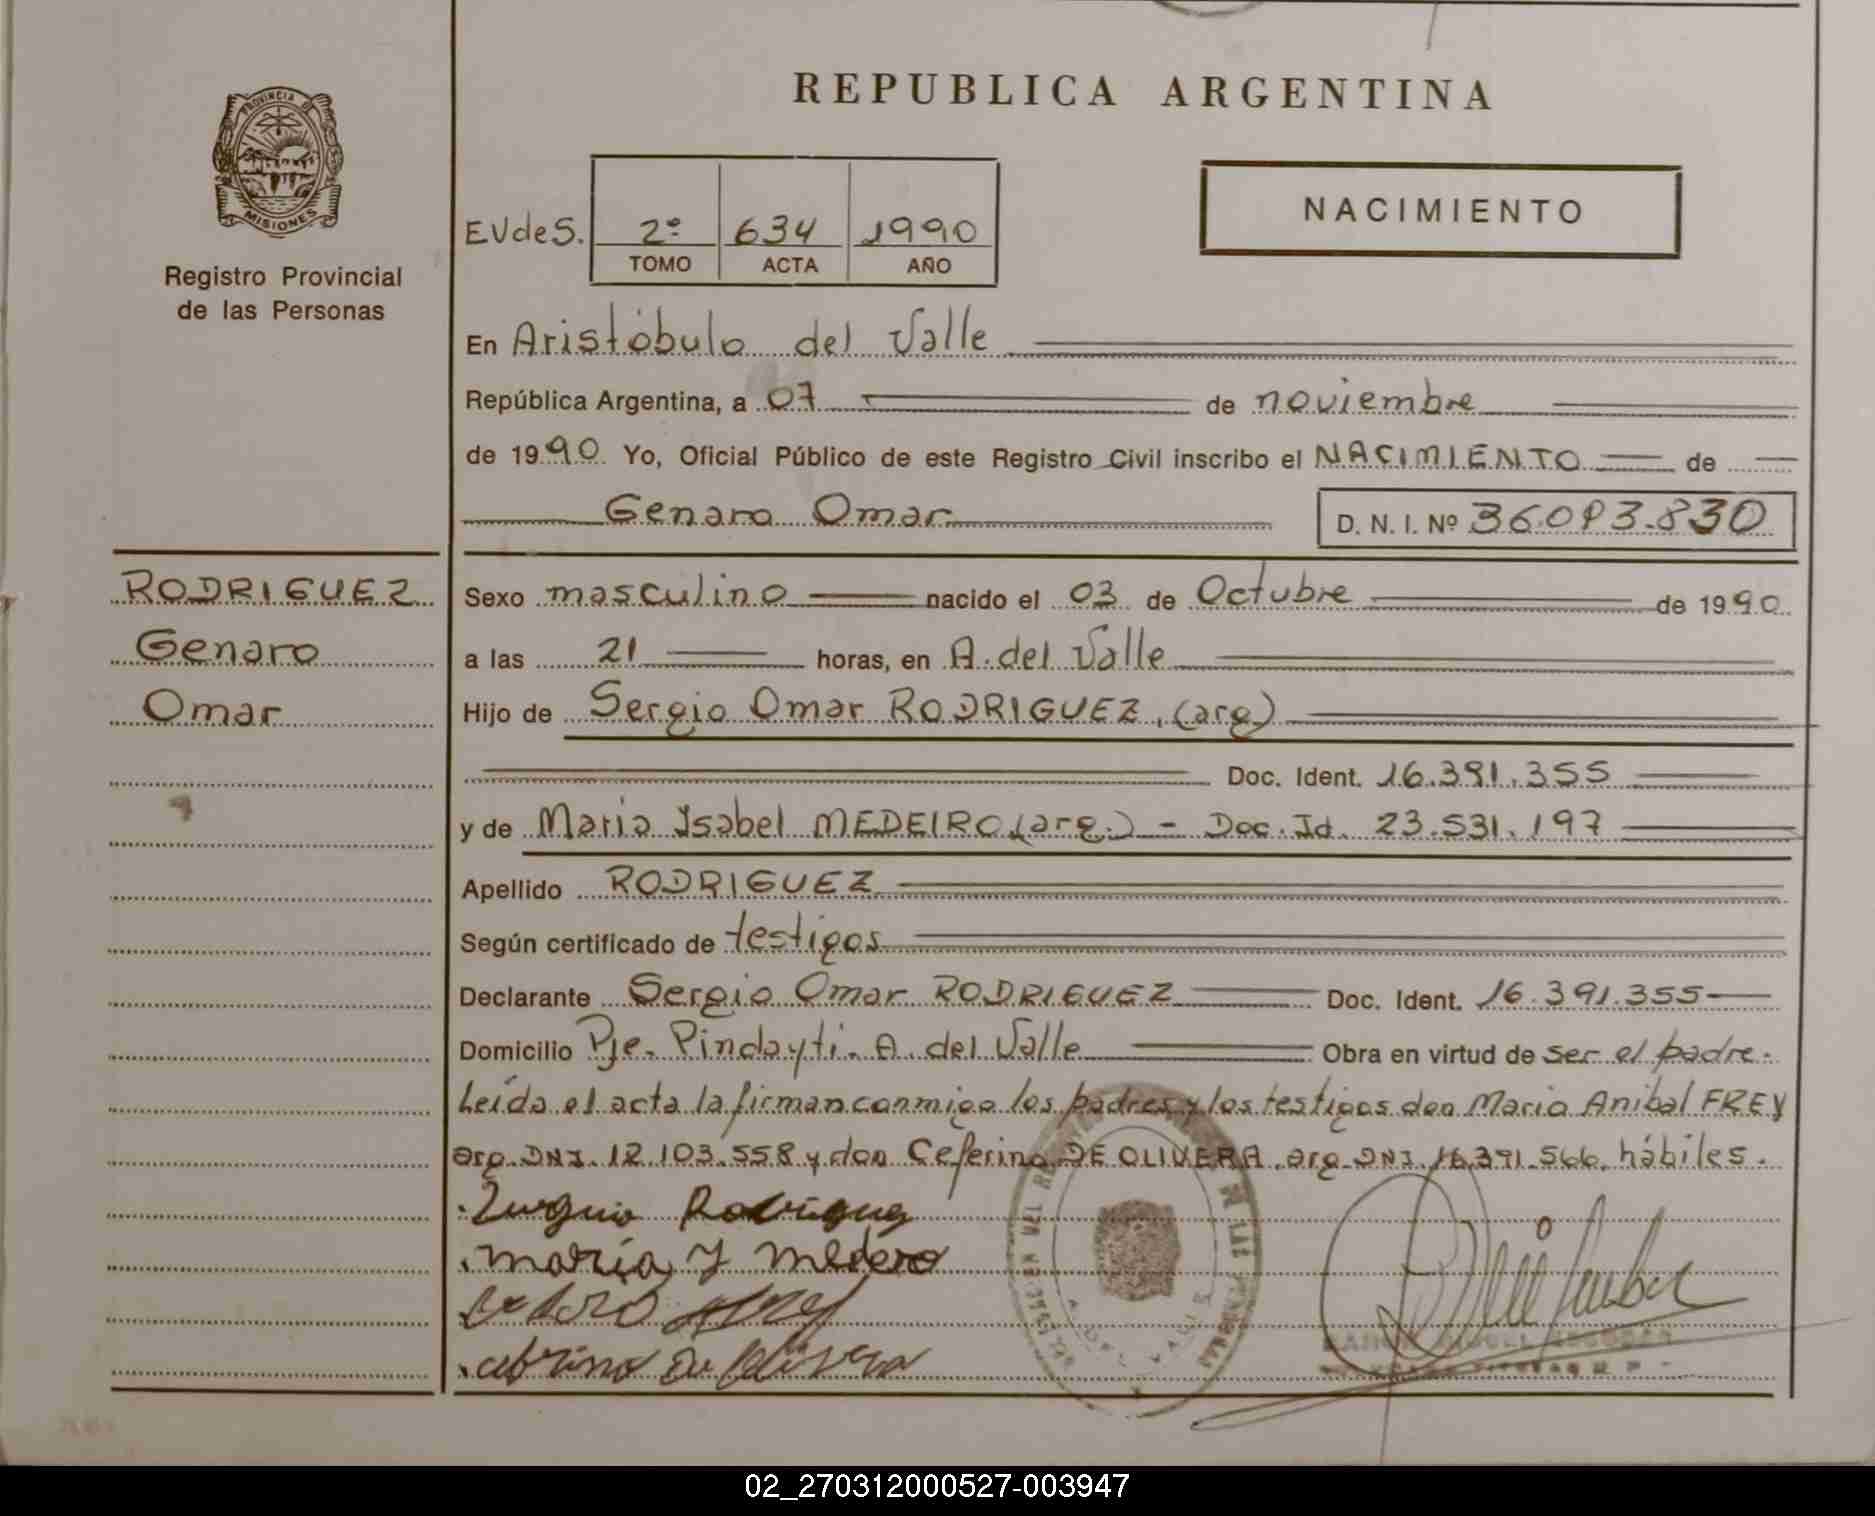 REPUBLICA ARGENTINA
PROVINCIA D
MISIONES
Registro Provincial
de las Personas
EVdeS.
2º 634 1990
TOMO ACTA AÑO
NACIMIENTO
En Aristóbulo del Valle
República Argentina, a 07 de noviembre
de 1990 Yo, Oficial Público de este Registro Civil inscribo el NACIMIENTO de
Genaro Omar
D. N. I. Nº 36.093.830
RODRIGUEZ
Genaro
Omar
Sexo masculino nacido el 03 de Octubre de 1990
a las 21 horas, en A. del Valle
Hijo de Sergio Omar RODRIGUEZ, (arg)
Doc. Ident. 16.391.355
y de Maria Isabel MEDEIRO (arg.) - Doc. Id. 23.531.197
Apellido RODRIGUEZ
Según certificado de testigos
Declarante Sergio Omar RODRIGUEZ Doc. Ident. 16.391.355
Domicilio Pje. Pindayti. A. del Valle Obra en virtud de ser el padre.
Leída el acta la firman conmigo los padres y los testigos don Mario Anibal FREY
arg. DNI. 12.103.558 y don Ceferino DE OLIVERA, arg. DNI. 16.391.566, hábiles.
Rodrigues
María Y Medero
02_270312000527-003947